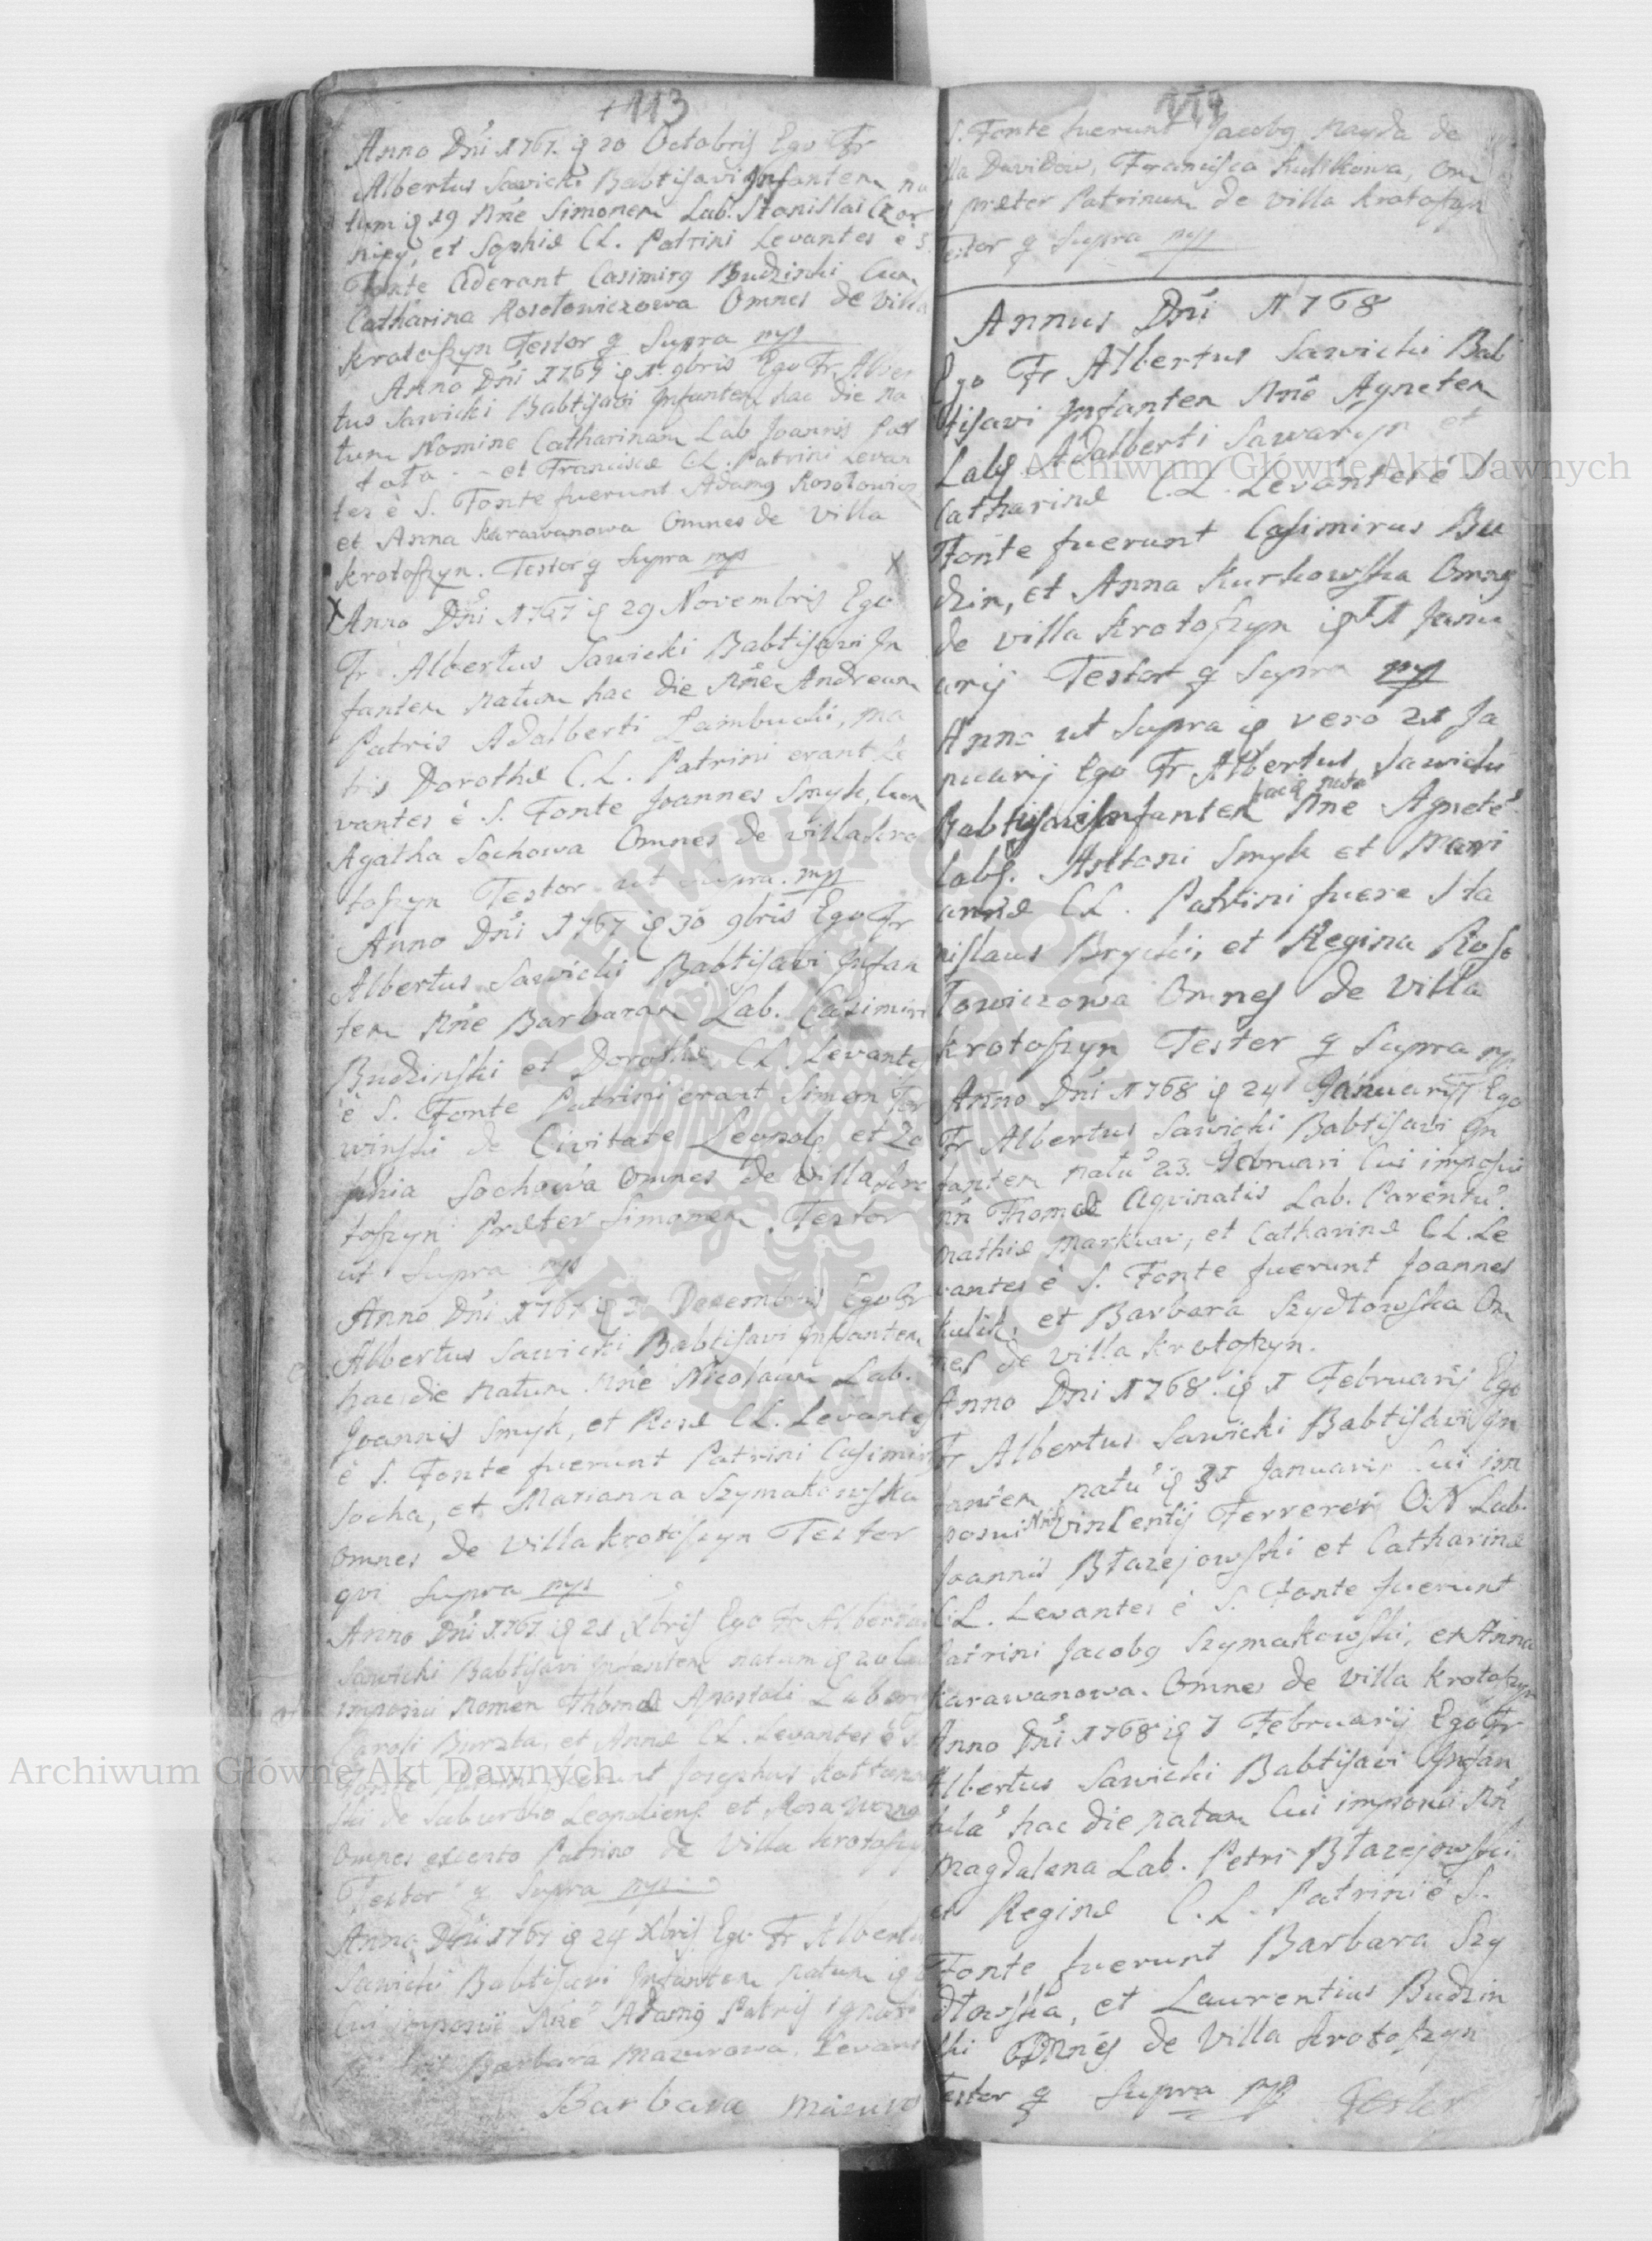 113
Anno Dni 1767. q 20 Octobris Ego Fr
Albertus Sawicki Babtisavi Infantem na
tum q 19 Nne Simonem Lab. Stanislai Czor
niey, et Sophiæ CL. Patrini Levantes è S.
Fonte Aderant Casimirg Budzinski Cum
Catharina Rosolowiczowa Omnes de Villa
Krotoszyn Testor q Supra mp
Anno Dni 1767 q 1 9bris Ego Fr. Alber
tus Sawicki Babtisavi Infantem hac die na
tum Nomine Catharinam Lab Joannis
et Franciscæ CL. Patrini Levan
tes è S. Fonte fuerunt Adamg Rosolowicz
et Anna Karawanowa Omnes de Villa
Krotoszyn. Testor q Supra mp
X
X Anno Dni 1767 q 29 Novembris Ego
Fr. Albertus Sawicki Babtisavi In
fantem natum hac die Nne Andream
Patris Adalberti Zaimbucki, ma
tris Dorothæ C.L. Patrini erant Le
vantes è S. Fonte Joannes Smyk, Cum
Agatha Sochowa Omnes de villa Kro
toszyn Testor ut Supra. mp
Anno Dni 1767 q 30 9bris Ego Fr
Albertus Sawicki Babtisavi Infan
tem Nne Barbaram Lab. Casimiri
Budzinski et Dorothæ CL. Levantes
è S. Fonte Patrini erant Simon
winski de Civitate Leopol. et Zo
phia Sochowa Omnes de Villa Kro
toszyn Præter Simonem. Testor
ut Supra mp
Anno Dni 1767 q 3 Decembris Ego Fr
Albertus Sawicki Babtisavi Infantem
hac die natum Nne Nicolaum Lab.
Joannis Smyk, et Rosæ CL. Levantes
è S. Fonte fuerunt Patrini Casimirg
Socha, et Marianna Szymakowska
Omnes de Villa Krotoszyn Testor
qvi Supra mp
Anno Dni 1767 q 21 Xbris Ego Fr Albertus
Sawicki Babtisavi Infantem natum q 20 Cui
imposui Nomen Thomæ Apostoli Lab
Caroli Burzta, et Annæ CL. Levantes è S.
Fonte fuerunt Josephus
ski de Suburbio Leopoliens et Rosa
Omnes excepto Patrino de Villa Krotoszyn
Testor q Supra mp
Anno Dni 1767 q 24 Xbris Ego Fr Albertus
Sawicki Babtisavi Infantem natum q
Cui imposui Nne Adamg Patris
Barbara Mazurowa. Levant
Barbara Mazuro
114
S. Fonte fuerunt Jacobg Mayda de
lla Davidow, Francisca Kulikowa, Om
præter Patrinum de Villa Krotoszyn
Testor q Supra mp
Annus Dni 1768
Ego Fr Albertus Sawicki Bab
tisavi Infantem Nne Agnetem
Labs. Adalberti Sawaryn et
Catharinæ C.L. Levantes è
Fonte fuerunt Casimirus Bu
dzin, et Anna Kurkowska Omneg
de villa Krotoszyn q 11 Janu
arij Testor q Supra mp
Anno ut Supra q vero 21 Ja
nuarij Ego Fr Albertus Sawicki
Babtisavi Infantem hac q nata Nne Agnete
Labs. Antoni Smyk et Mari
annæ CL. Patrini fuere Sta
nislaus Brycki, et Regina Roso
lowiczowa Omnes de Villa
Krotoszyn Testor q Supra mp
Anno Dni 1768 q 24 Januarij Ego
Fr Albertus Sawicki Babtisavi In
fantem natu 23. Februari Cui imposui
Nn Thomæ Aqvinatis Lab. Parentu.
Mathiæ Markuw, et Catharinæ CL. Le
vantes è S. Fonte fuerunt Joannes
Kulik, et Barbara Szydłowska Om
nes de Villa Krotoszyn.
Anno Dni 1768. q 1 Februarij Ego
Fr Albertus Sawicki Babtisavi In
fantem natu q 31 Januarij Cui im
posui Nn Vincentij Ferrereri O.N Lab.
Joannis Błazejowski et Catharinæ
C.L. Levantes è S. Fonte fuerunt
Patrini Jacobg Szymakowski, et Anna
Karawanowa. Omnes de Villa Krotoszyn
Anno Dni 1768 q 7 Februarij Ego Fr
Albertus Sawicki Babtisavi Infan
tula hac die natam Cui imposui Nn
Magdalena Lab. Petri Błazejowski
et Reginæ C.L. Patrini è S.
Fonte fuerunt Barbara Szy
dłowska, et Laurentius Budzin
ski Omnes de Villa Krotoszyn
Testor q Supra mp Testor
Archiwum Główne Akt Dawnych
Archiwum Główne Akt Dawnych
ARCHIWUM GŁÓWNE AKT DAWNYCH